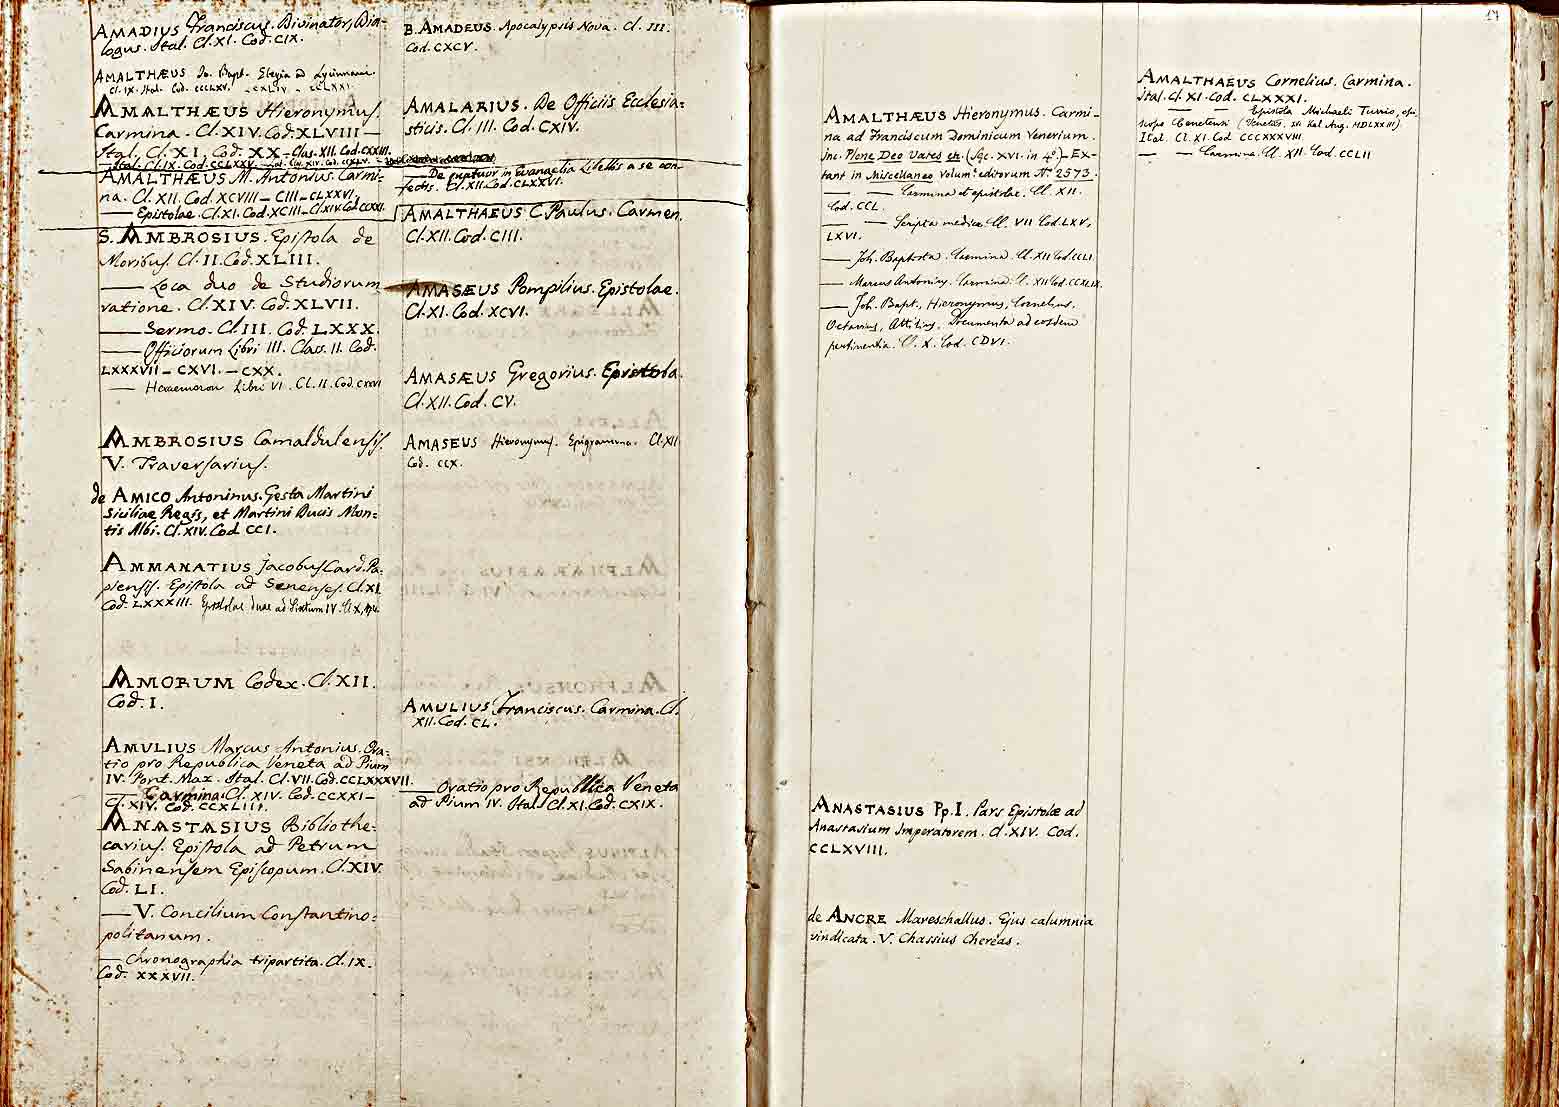 AMADIUS Franciscus. Divinator, Dia=
logus. Ital. Cl. XI. Cod. CIX.
AMALTHÆUS Jo. Bapt. Elegia ad Lycinnam.
Cl. IX. Ital. Cod. CCCLXV. – CXLIV. – CCLXXI
AMALTHÆUS Hieronymus.
Carmina. Cl. XIV. Cod. XLVIII —
Ital. Cl. XI. Cod. XX – Clas. XII. Cod. CXXIII.
Ital. Cl. IX. Cod. CCLXXV.
AMALTHÆUS M. Antonius. Carmi=
na. Cl. XII. Cod. XCVIII – CIII – CLXXVI.
—— Epistolae. Cl. XI. Cod. XCIII – Cl. XIV. Cod. CCXXI.
S. AMBROSIUS. Epistola de
Moribus. Cl. II. Cod. XLIII.
—— Loca duo de Studiorum
ratione. Cl. XIV. Cod. XLVII.
—— Sermo. Cl. III. Cod. LXXX.
—— Officiorum Libri III. Class. II. Cod.
LXXXVII – CXVI. – CXX.
—— Hexaemeron Libri VI. Cl. II. Cod. CXXVI
AMBROSIUS Camaldulensis.
V. Traversarius.
de AMICO Antoninus. Gesta Martini
Siciliae Regis, et Martini Ducis Mon=
tis Albi. Cl. XIV. Cod CCI.
AMMANATIUS Jacobus Card. Pa=
piensis. Epistola ad Senenses. Cl. XI.
Cod. LXXXIII. Epistolae duae ad Sixtum IV. Cl. X,
AMORUM Codex. Cl. XII.
Cod. I.
AMULIUS Marcus Antonius. Ora=
tio pro Republica Veneta ad Pium
IV. Pont. Max. Ital. Cl. VII. Cod. CCLXXXVII.
—— Carmina. Cl. XIV. Cod. CCXXI –
Cl. XIV. Cod. CCXLIII.
ANASTASIUS Bibliothe=
carius. Epistola ad Petrum
Sabinensem Episcopum. Cl. XIV.
Cod. LI.
—— V. Concilium Constantino=
politanum.
—— Chronographia tripartita. Cl. IX.
Cod. XXXVII.
B. AMADEUS. Apocalypsis Nova. Cl. III.
Cod. CXCV.
AMALARIUS. De Officiis Ecclesia=
sticis. Cl. III. Cod. CXIV.
—— De quatuor in Evangelia Libellis a se con=
fectis. Cl. XII. Cod. CLXXVI.
AMALTHAEUS C. Paulus. Carmen.
Cl. XII. Cod. CIII.
AMASÆUS Pompilius. Epistolae.
Cl. XI. Cod. XCVI.
AMASÆUS Gregorius. Epistola.
Cl. XII. Cod. CV.
AMASEUS Hieronymus. Epigramma. Cl. XII
Cod. CCX.
AMULIUS Franciscus. Carmina. Cl.
XII. Cod. CL.
—— Oratio pro Republica Veneta
ad Pium IV. Ital. Cl. XI. Cod. CXIX.
17
AMALTHÆUS Hieronymus. Carmi-
na ad Franciscum Dominicum Venerium.
Inc. Plene Deo Vates etc. (Sæc. XVI. in 4°.) – Ex-
tant in Miscellaneo Volum.e editorum N.° 2573.
—— —— Carmina et epistolae. Cl. XII.
Cod. CCL.
—— Scripta medica Cl. VII Cod. LXV,
LXVI.
—— Joh. Baptista. Carmina. Cl. XII Cod. CCLI
—— Marcus Antonius. Carmina. Cl. XII Cod. CCXLIX.
—— Joh. Bapt., Hieronymus, Cornelius,
Octavius, Attilius, Documenta ad eosdem
pertinentia. Cl. X. Cod. CDVI.
ANASTASIUS Pp. I. Pars Epistolæ ad
Anastasium Imperatorem. Cl. XIV. Cod.
CCLXVIII.
de ANCRE Mareschallus. Ejus calumnia
vindicata. V. Chassius Chereas.
AMALTHAEUS Cornelius. Carmina.
Ital. Cl. XI. Cod. CLXXXI.
— — Epistola Michaeli Turrio, epi
scopo Cenetensi (Venetiis, XII Kal Aug. MDLXXIII)
Ital. Cl. XI. Cod CCCXXXVIII
— — Carmina. Cl. XII. Cod. CCLII